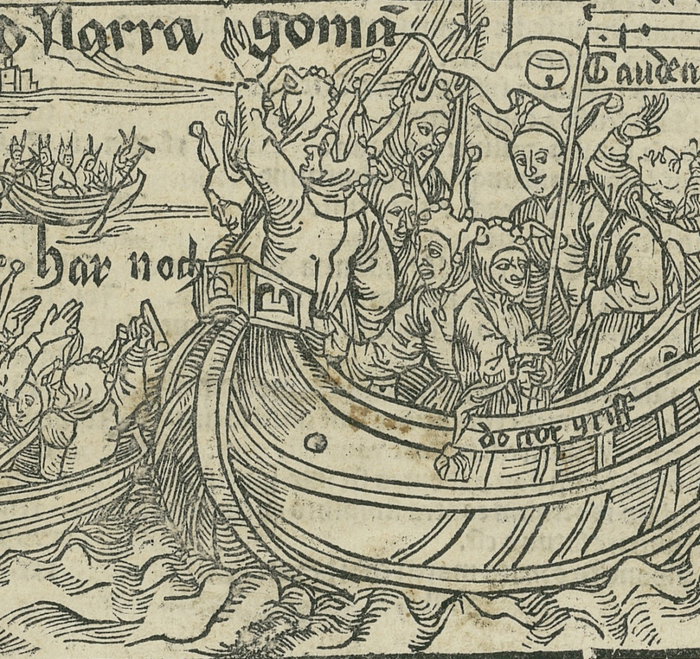 Narragomā
Gaudea
har noch
doctor griff